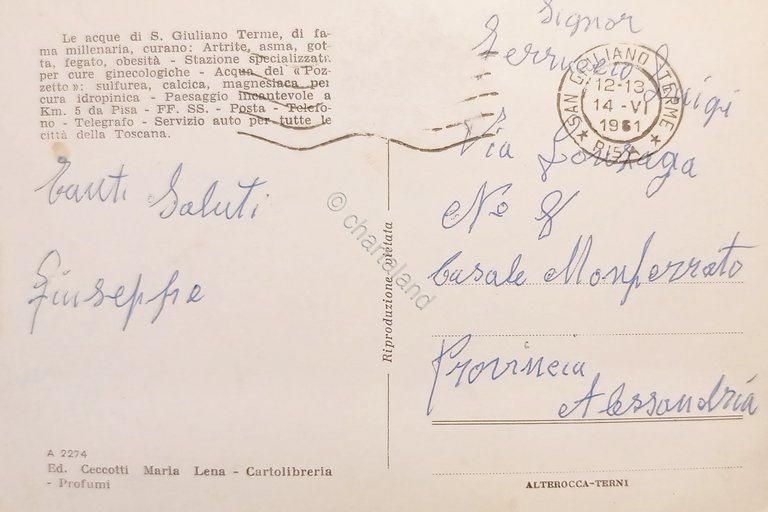 Le acque di S. Giuliano Terme, di fa-
ma millenaria, curano: Artrite, asma, got-
ta, fegato, obesità - Stazione specializzata
per cure ginecologiche - Acqua del «Poz-
zetto»: sulfurea, calcica, magnesiaca per
cura idropinica - Paesaggio incantevole a
Km. 5 da Pisa - FF. SS. - Posta - Telefo-
no - Telegrafo - Servizio auto per tutte le
città della Toscana.
Tanti Saluti
Giuseppe
A 2274
Ed. Ceccotti Maria Lena - Cartolibreria
- Profumi
Riproduzione vietata
© chartaland
SAN GIULIANO TERME
12-13
14-VI
1961
PISA
Signor
Ferruccio Luigi
Via Gonzaga
No 8
Casale Monferrato
Provincia
Alessandria
ALTEROCCA-TERNI